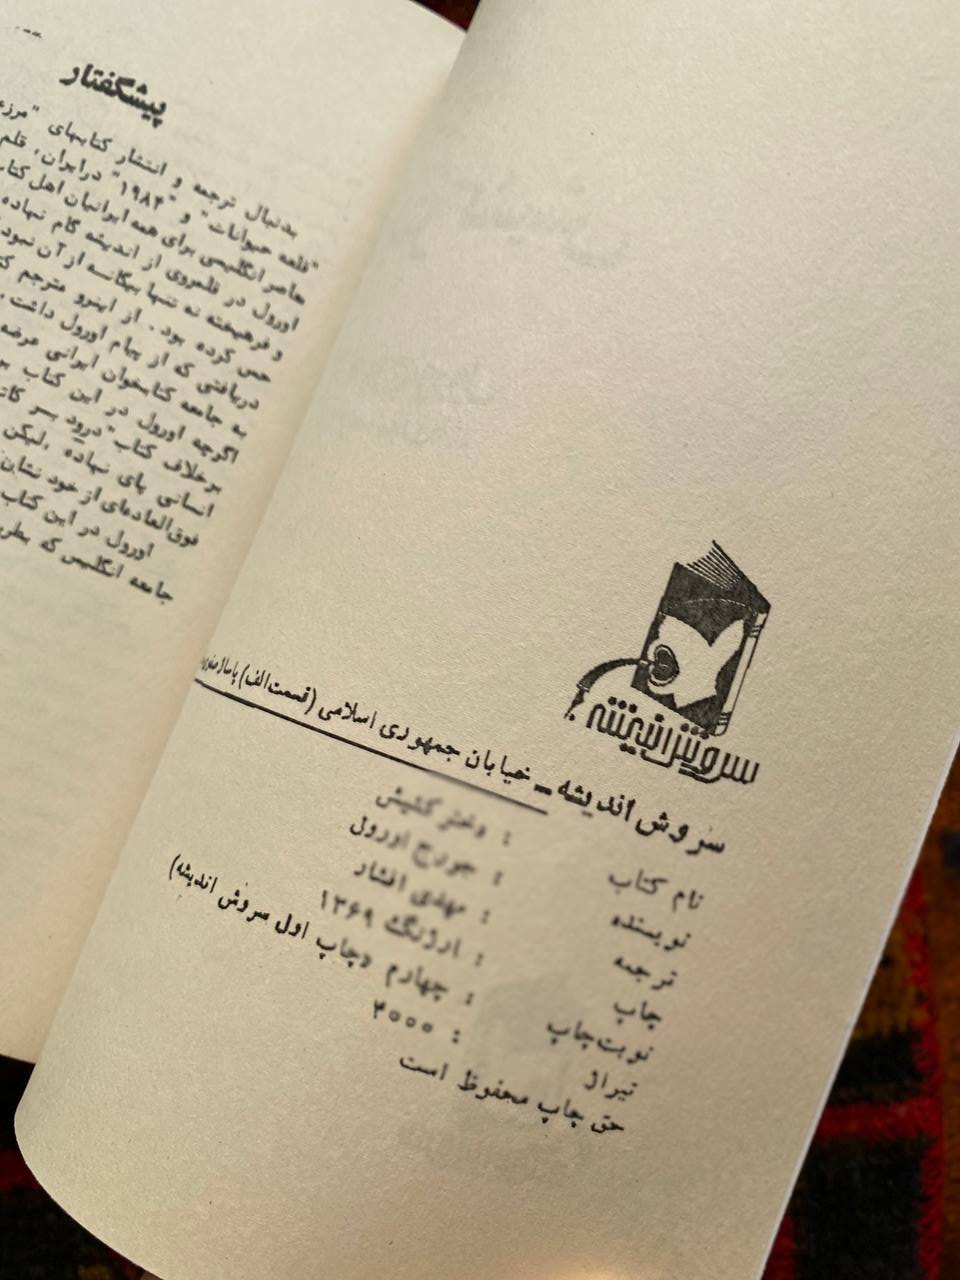 پیشگفتار
بدنبال ترجمه و انتشار کتابهای "مرزعه
"قلعه حیوانات" و "۱۹۸۴" درایران، قلم
معاصر انگلیسی برای همه ایرانیان اهل کتاب
اورول در قلمروی از اندیشه گام نهاده
و فرهیخته نه تنها بیگانه از آن نبود
حس کرده بود. از اینرو مترجم
دریافتی که از پیام اورول داشت،
به جامعه کتابخوان ایرانی عرضه
اگرچه اورول در این کتاب
برخلاف کتاب "درود بر
انسانی پای نهاده، لیکن
فوق‌العاده‌ای از خود نشان
اورول در این کتاب
جامعه انگلیس که بطر
سروش اندیشه
سروش اندیشه ـ خیابان جمهوری اسلامی (قسمت الف) پاساژ صفوی
نام کتاب : دختر کشیش
نویسنده : جورج اورول
ترجمه : مهدی افشار
چاپ : ارژنگ ۱۳۶۹
نوبت چاپ : چهارم (چاپ اول سروش اندیشه)
تیراژ : ۲۰۰۰
حق چاپ محفوظ است